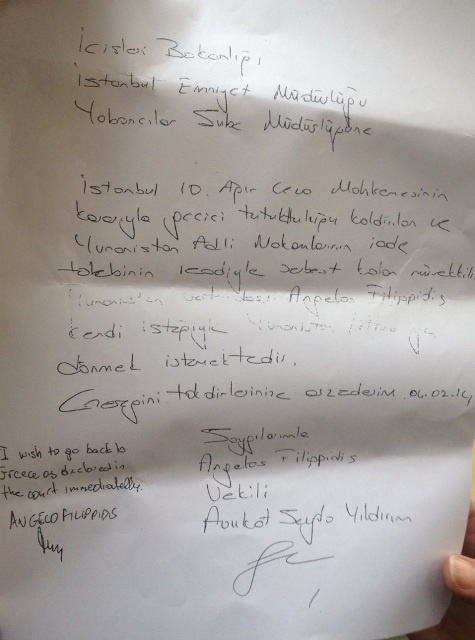 İçişleri Bakanlığı,
İstanbul Emniyet Müdürlüğü
Yabancılar Şube Müdürlüğüne
İstanbul 10. Ağır Ceza Mahkemesinin
kararıyla geçici tutukluluğu kaldırılan ve
Yunanistan Adli Makamlarının iade
talebinin reddiyle serbest kalan müvekkilim
Yunanistan vatandaşı Angelos Filippidis
kendi isteğiyle Yunanistan
dönmek istemektedir.
Gereğini takdirlerinize arzederim. 04.02.14
Saygılarımla
Angelos Filippidis
Vekili
Avukat Seyda Yıldırım
I wish to go back to
Greece as declared in
the court immediatelly.
ANGELO FILIPPIDIS